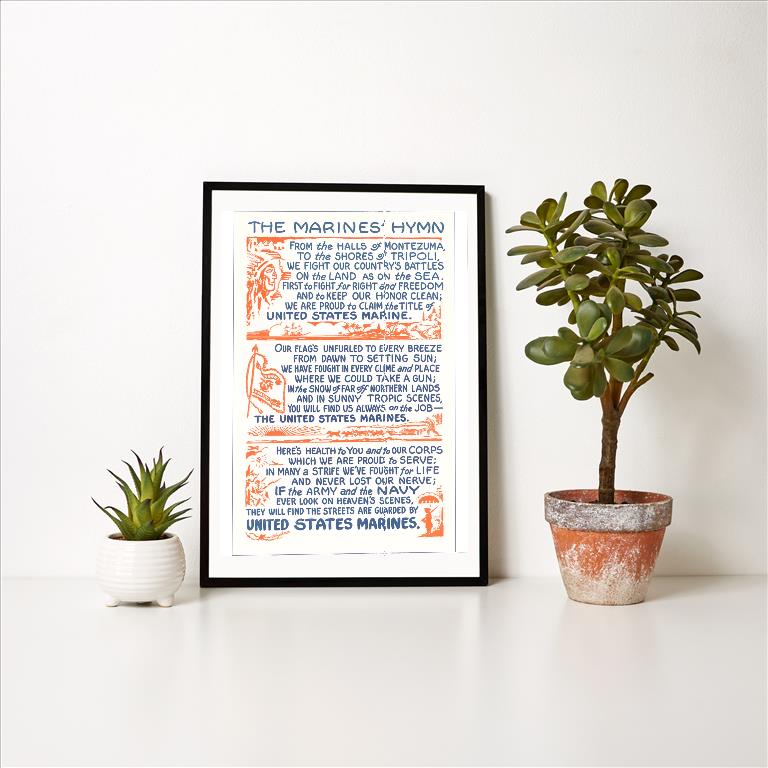 THE MARINES' HYMN
FROM the HALLS of MONTEZUMA,
TO the SHORES of TRIPOLI,
WE FIGHT OUR COUNTRY'S BATTLES
ON the LAND AS ON the SEA.
FIRST to FIGHT for RIGHT and FREEDOM
AND to KEEP OUR HONOR CLEAN;
WE ARE PROUD to CLAIM the TITLE of
UNITED STATES MARINE.
OUR FLAG'S UNFURLED TO EVERY BREEZE
FROM DAWN TO SETTING SUN;
WE HAVE FOUGHT IN EVERY CLIME and PLACE
WHERE WE COULD TAKE A GUN;
IN the SNOW of FAR off NORTHERN LANDS
AND IN SUNNY TROPIC SCENES,
YOU WILL FIND US ALWAYS on the JOB—
THE UNITED STATES MARINES.
HERE'S HEALTH to YOU and to OUR CORPS
WHICH WE ARE PROUD to SERVE;
IN MANY a STRIFE WE'VE FOUGHT for LIFE
AND NEVER LOST OUR NERVE;
IF the ARMY and the NAVY
EVER LOOK ON HEAVEN'S SCENES,
THEY WILL FIND THE STREETS ARE GUARDED BY
UNITED STATES MARINES.